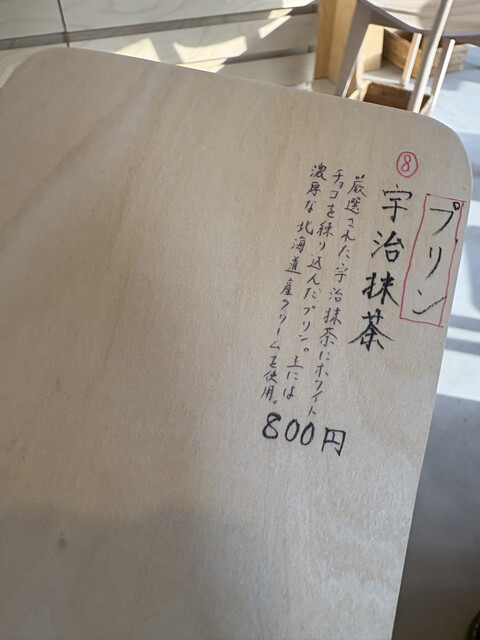 プリン
⑧
宇治抹茶
厳選された宇治抹茶にホワイト
チョコを練り込んだプリン。上には
濃厚な北海道産クリームを使用。
800円